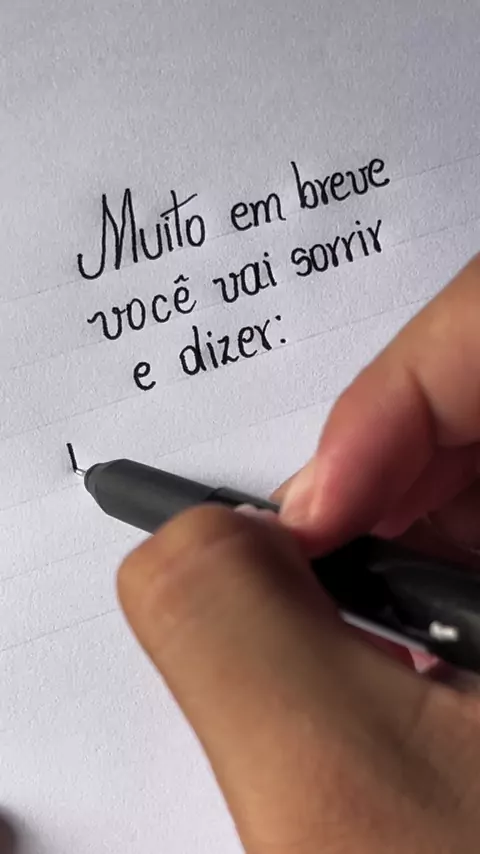 Muito em breve
você vai sorrir
e dizer: